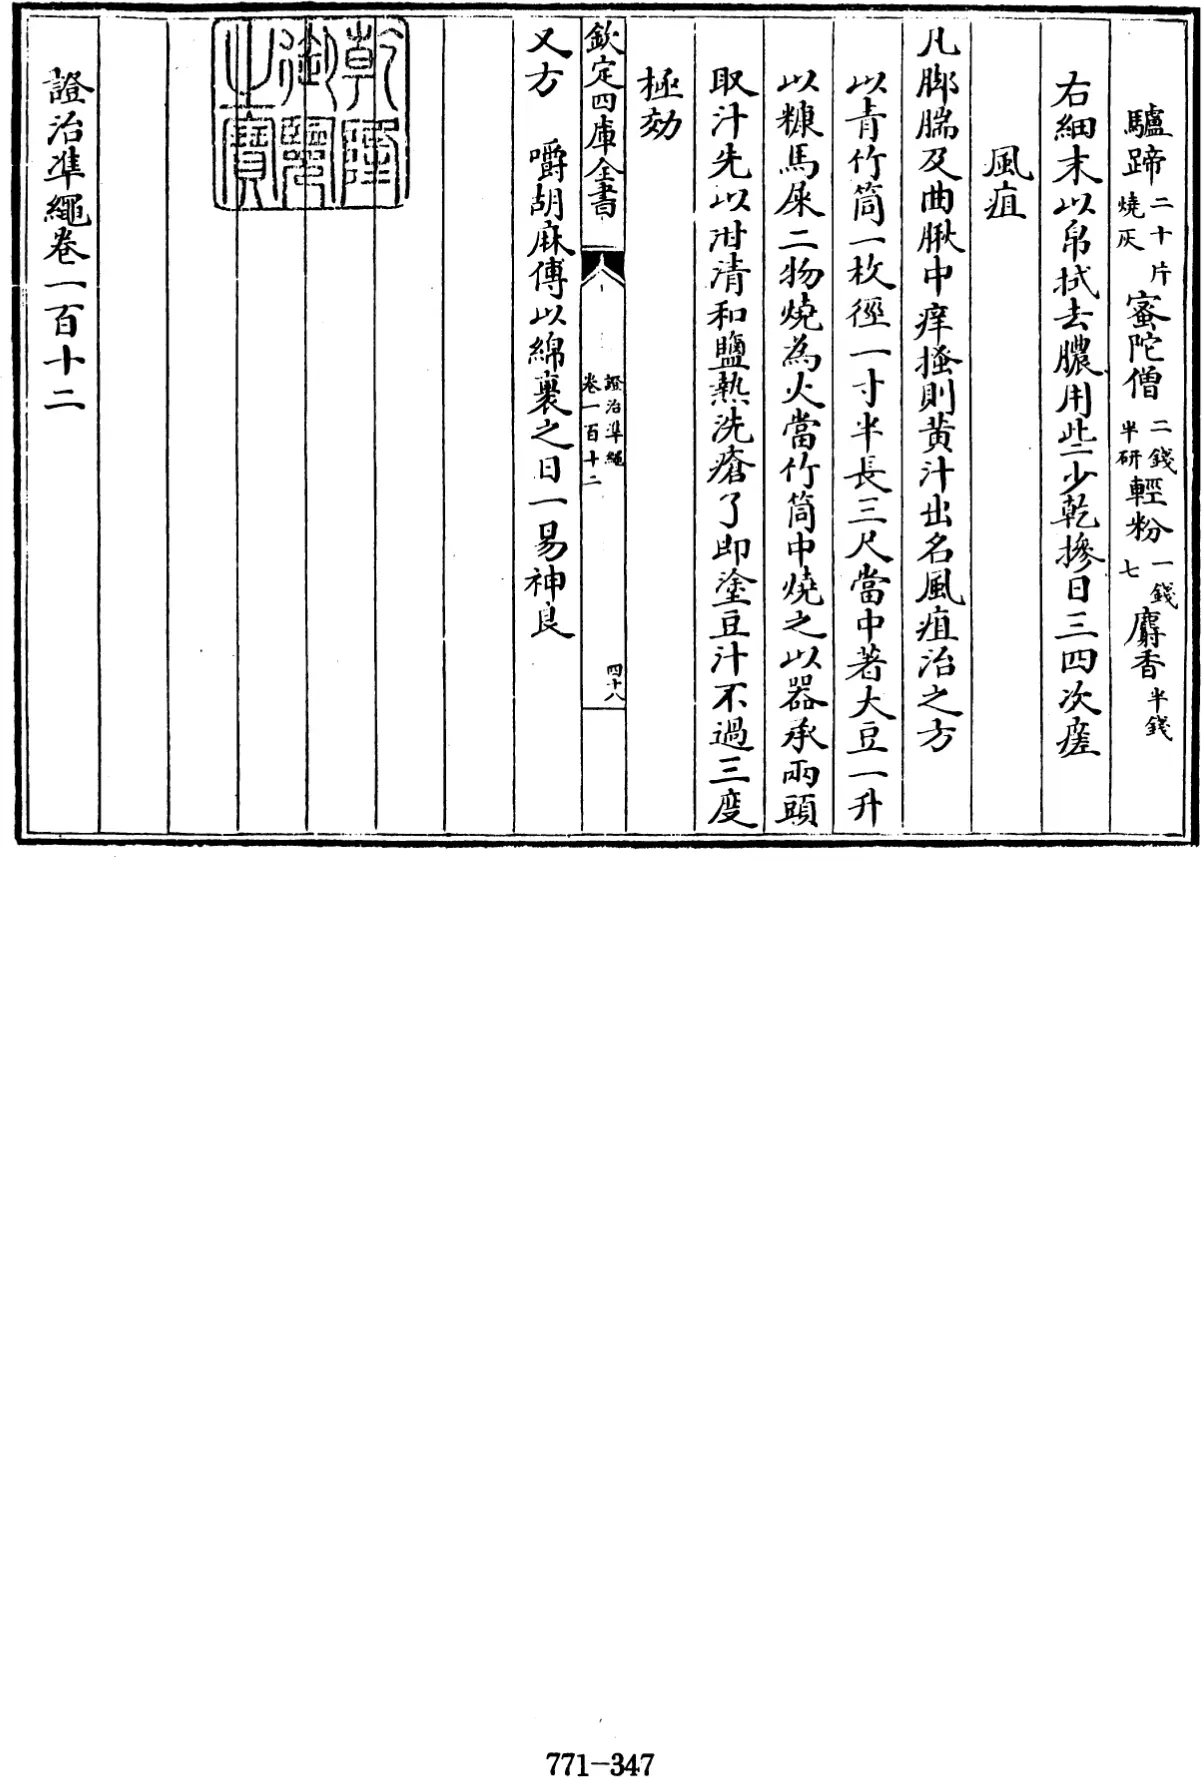 驢蹄二十片燒灰蜜陀僧二錢半研輕粉一錢七麝香半錢
右細末以帛拭去膿用些少乾摻日三四次瘥
風疽
凡脚腨及曲䐐中痒搔則黄汁出名風疽治之方
以青竹筒一枚徑一寸半長三尺當中著大豆一升
以糠馬屎二物燒為火當竹筒中燒之以器承兩頭
取汁先以泔清和鹽熱洗瘡了即塗豆汁不過三度
極効
欽定四庫全書
證治準繩
卷一百十二
四十八
又方 嚼胡麻傅以綿裹之日一易神良
乾隆御覽之寶
證治準繩卷一百十二
771-347